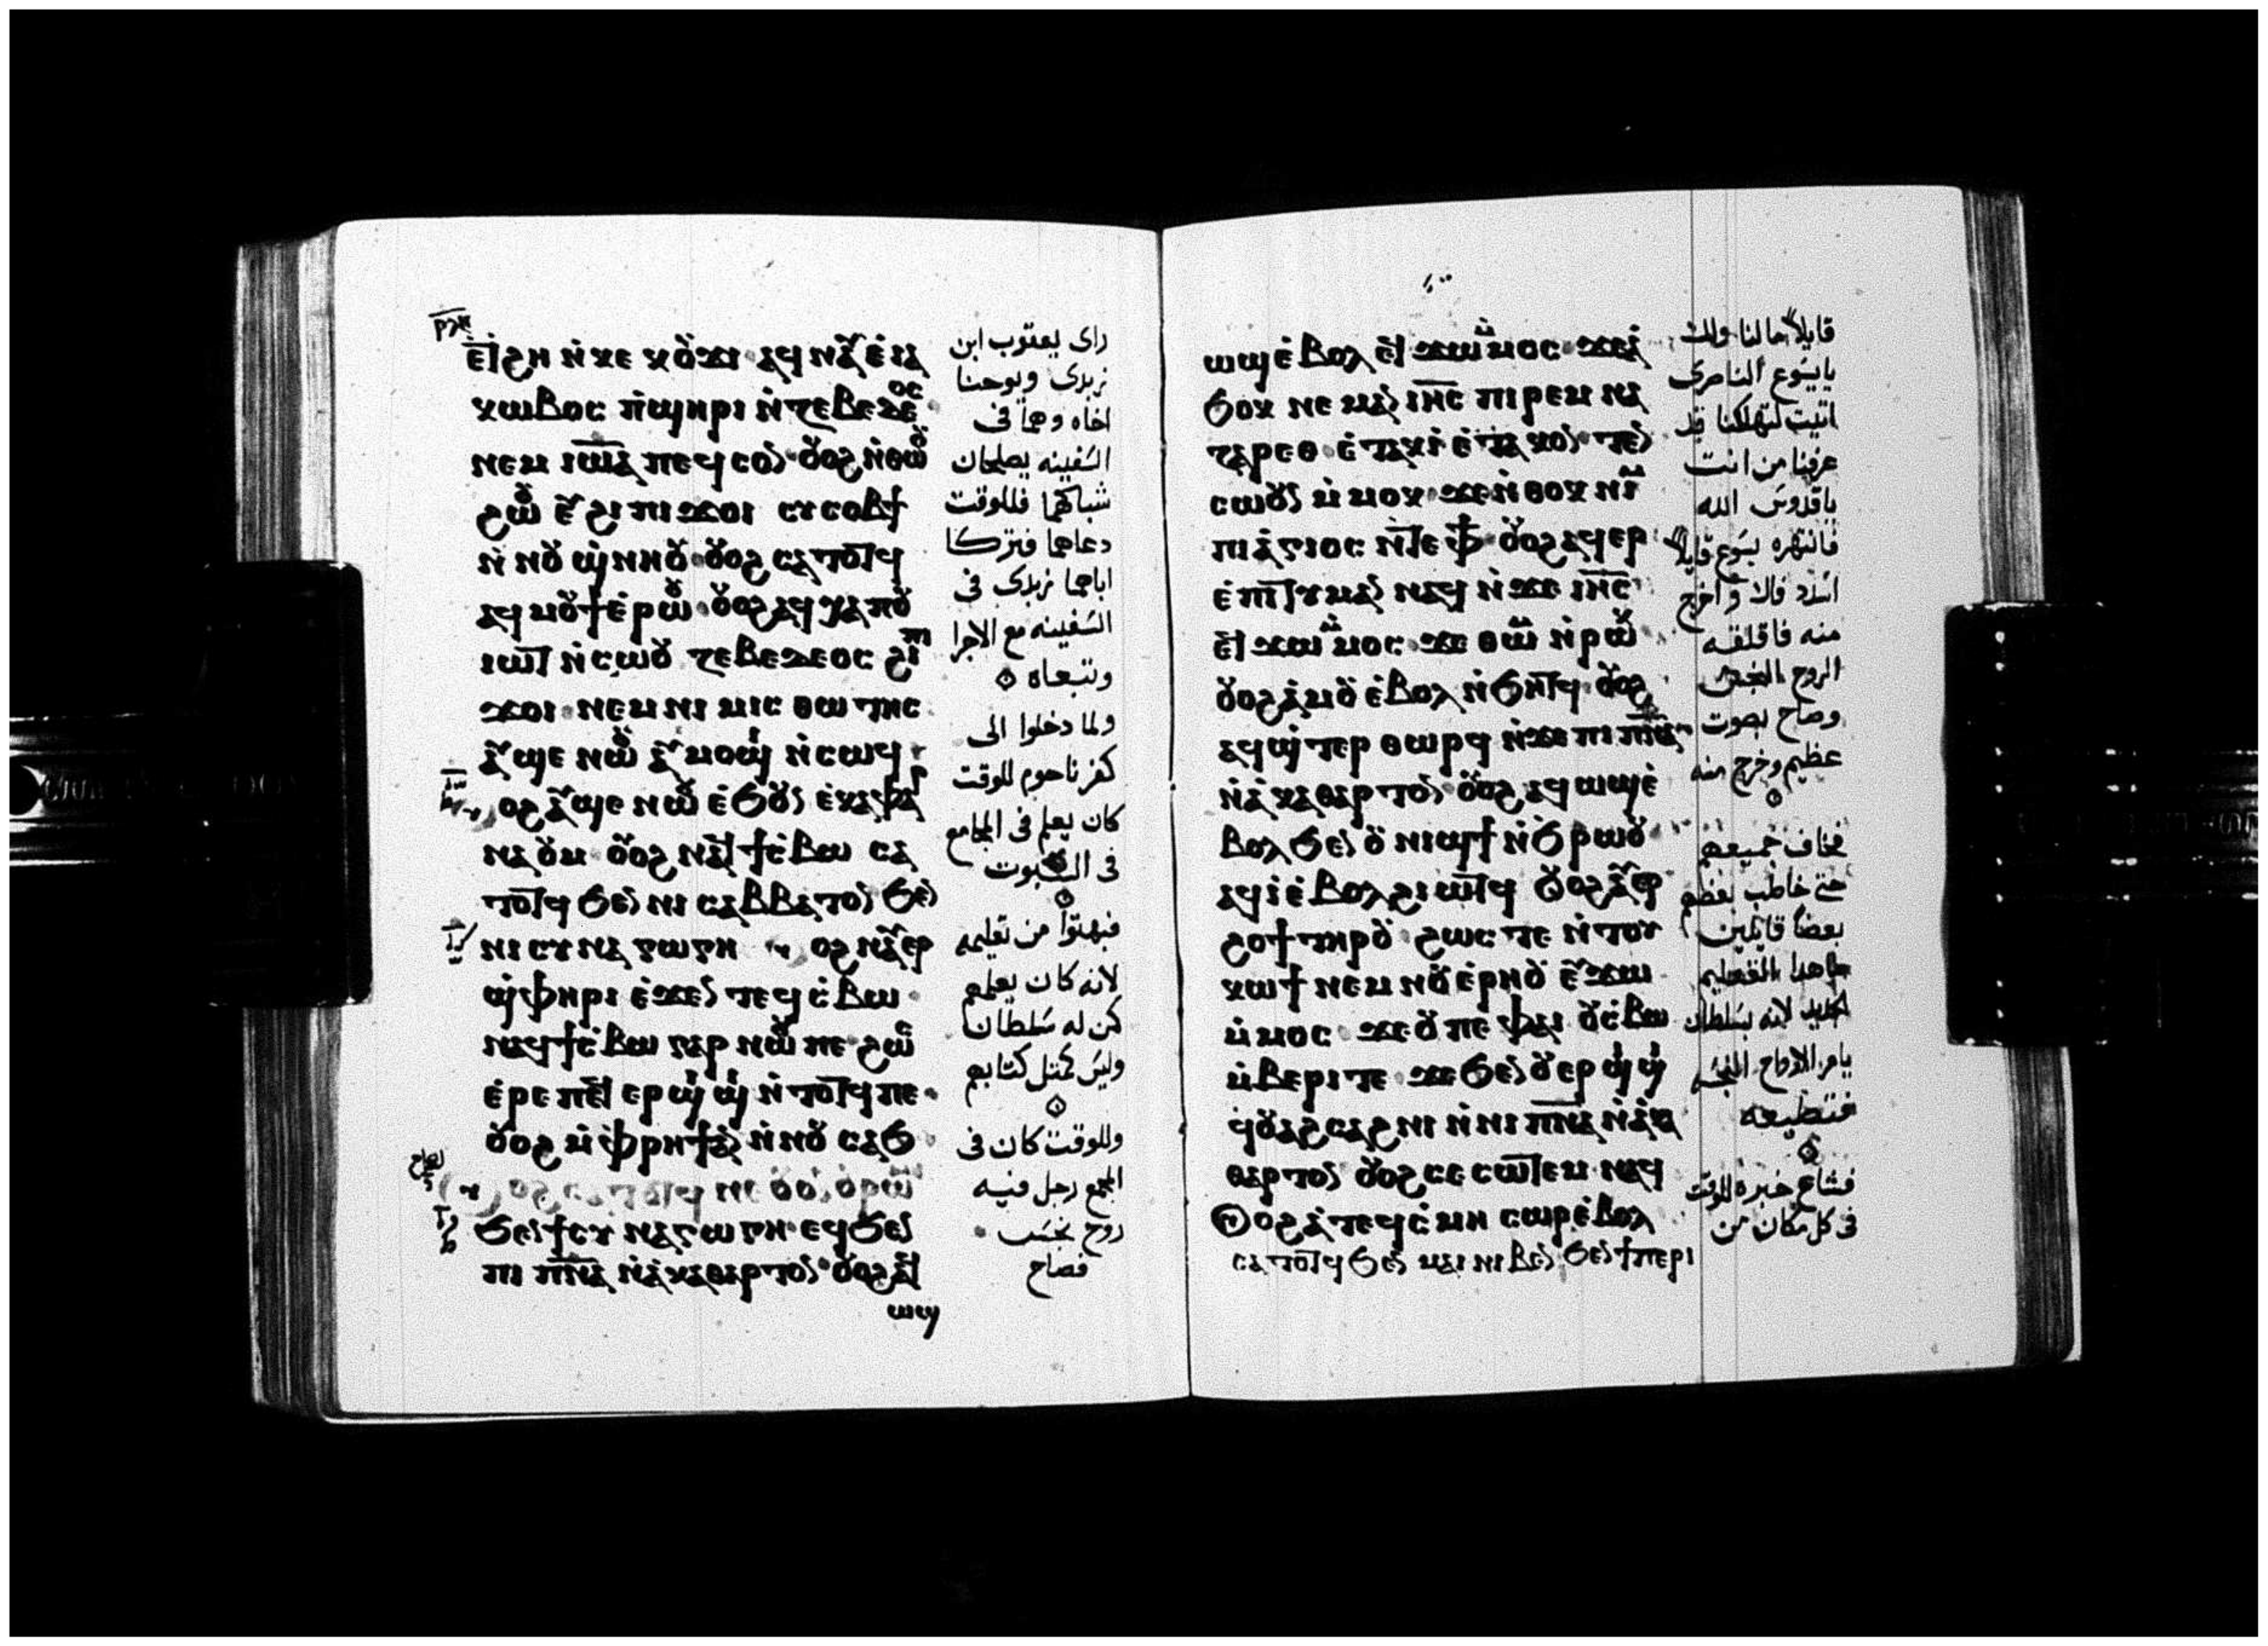 ⲉ̅ⲧϩⲏ ⲛ̀ⲕⲉ ⲕⲟⲩϫⲓ ⲁϥⲛⲁⲩ ⲉ̀ⲓⲁ
ⲕⲱⲃⲟⲥ ⲡ̀ϣⲏⲣⲓ ⲛ̀ⲍⲉⲃⲉⲇⲉⲟⲥ
ⲛⲉⲙ ⲓⲱ̅ⲁ ⲡⲉϥⲥⲟⲛ ⲟⲩⲟϩ ⲛ̀ⲑⲱⲟⲩ
ϩⲱⲟⲩ ⲉⲩϩⲓ ⲡⲓϫⲟⲓ ⲉⲩⲥⲟⲃϯ
ⲛ̀ⲛⲟⲩϣ̀ⲛⲏⲟⲩ ⲟⲩⲟϩ ⲥⲁⲧⲟⲧϥ
ⲁϥⲙⲟⲩϯ ⲉ̀ⲣⲱⲟⲩ ⲟⲩⲟϩ ⲁⲩⲭⲁ ⲡⲟⲩ
ⲓⲱⲧ ⲛ̀ⲥⲱⲟⲩ ⲍⲉⲃⲉⲇⲉⲟⲥ ϩⲓ ⲡⲓ
ϫⲟⲓ ⲛⲉⲙ ⲛⲓ ⲙⲓⲥⲑⲱⲧⲏⲥ
ⲁⲩϣⲉ ⲛⲱⲟⲩ ⲁⲩⲙⲟϣⲓ ⲛ̀ⲥⲱϥ
ⲟϩ ⲁⲩϣⲉ ⲛⲱⲟⲩ ⲉ̀ϧⲟⲩⲛ ⲉ̀ⲕⲁⲫⲁⲣ
ⲛⲁⲟⲩⲙ ⲟⲩⲟϩ ⲛⲁϥϯⲥ̀ⲃⲱ ⲥⲁ
ⲧⲟⲧϥ ϧⲉⲛ ⲛⲓ ⲥⲁⲃⲃⲁⲧⲟⲛ ϧⲉⲛ
ⲛⲓ ⲥⲩⲛⲁⲅⲱⲅⲏ ⲟϩ ⲛⲁⲩⲉⲣ
ϣ̀ⲫⲏⲣⲓ ⲉ̀ϫⲉⲛ ⲧⲉϥⲥ̀ⲃⲱ
ⲛⲁϥϯⲥ̀ⲃⲱ ⲅⲁⲣ ⲛⲱⲟⲩ ⲡⲉ ϩⲱⲥ
ⲉ̀ⲣⲉ ⲡⲉⲧ ⲉⲣϣⲓϣⲓ ⲛ̀ⲧⲟⲧϥ ⲡⲉ
ⲟⲩⲟϩ ⲙ̀ⲫⲣⲏϯ ⲁⲛ ⲛ̀ⲛⲟⲩ ⲥⲁϧ
ⲟϩ ⲥⲁⲧⲟⲧϥ ⲛⲉ ⲟⲩⲟⲛ ⲟⲩⲣⲱⲙⲓ
ϧⲉⲛ ϯⲥⲩⲛⲁⲅⲱⲅⲏ ⲉϥϧⲉⲛ
ⲡⲓ ⲡ̅ⲛ̅ⲁ̅ ⲛ̀ⲁ̀ⲕⲁⲑⲁⲣⲧⲟⲛ ⲟⲩⲟϩ ⲁϥ
ⲱϣ
راى يعقوب ابن
زبدى ويوحنا
اخاه وهما فى
السفينه يصلحان
شباكهما فللوقت
دعاهما فتركا
اباهما زبدى فى
السفينه مع الاجرا
وتبعاه
ولما دخلوا الى
كفرناحوم للوقت
كان يعلم فى المجامع
فى السبوت
فبهتوا من تعليمه
لانه كان يعلم
كمن له سلطان
وليس كمثل كتابهم
وللوقت كان فى
المجمع رجل فيه
روح نجس
فصاح
ⲱϣ ⲉ̀ⲃⲟⲗ ⲉϥϫⲱ ⲙ̀ⲙⲟⲥ ϫⲉ ⲁ̀
ϧⲟⲕ ⲛⲉⲙⲁⲛ ⲓⲏ̅ⲥ̅ ⲡⲓⲣⲉⲙ ⲛⲁ
ⲍⲁⲣⲉⲑ ⲉ̀ⲧⲁⲕⲓ̀ ⲉ̀ⲧⲁⲕⲟⲛ ⲧⲉⲛ
ⲥⲱⲟⲩⲛ ⲙ̀ⲙⲟⲕ ϫⲉ ⲛ̀ⲑⲟⲕ ⲛⲓⲙ
ⲡⲓⲁ̀ⲅⲓⲟⲥ ⲛ̀ⲧⲉ ⲫϯ ⲟⲩⲟϩ ⲁϥⲉⲣ
ⲉ̀ⲡⲓⲧⲓⲙⲁⲛ ⲛⲁϥ ⲛ̀ϫⲉ ⲓⲏ̅ⲥ̅
ⲉϥϫⲱ ⲙ̀ⲙⲟⲥ ϫⲉ ⲑⲱⲙ ⲛ̀ⲣⲱⲕ
ⲟⲩⲟϩ ⲁ̀ⲙⲟⲩ ⲉ̀ⲃⲟⲗ ⲛ̀ϧⲏⲧϥ ⲟⲩⲟϩ
ⲁϥϣ̀ⲧⲉⲣⲑⲱⲣϥ ⲛ̀ϫⲉ ⲡⲓ ⲡ̅ⲛ̅ⲁ̅
ⲛ̀ⲁ̀ⲕⲁⲑⲁⲣⲧⲟⲛ ⲟⲩⲟϩ ⲁϥⲱϣ ⲉ̀
ⲃⲟⲗ ϧⲉⲛ ⲟⲩⲛⲓϣϯ ⲛ̀ϧⲣⲱⲟⲩ
ⲁϥⲓ̀ ⲉ̀ⲃⲟⲗ ϩⲓⲱⲧϥ ⲟⲩⲟϩ ⲁⲩⲉⲣ
ϩⲟϯ ⲧⲏⲣⲟⲩ ϩⲱⲥⲧⲉ ⲛ̀ⲧⲟⲩ
ⲕⲱϯ ⲛⲉⲙ ⲛⲟⲩⲉ̀ⲣⲏⲟⲩ ⲉⲩϫⲱ
ⲙ̀ⲙⲟⲥ ϫⲉ ⲟⲩ ⲡⲉ ⲫⲁⲓ ⲟⲩⲥ̀ⲃⲱ
ⲙ̀ⲃⲉⲣⲓ ⲧⲉ ϫⲉ ϧⲉⲛ ⲟⲩⲉⲣϣⲓϣⲓ
ϥⲟⲩⲁϩⲥⲁϩⲛⲓ ⲛ̀ⲛⲓ ⲡ̅ⲛ̅ⲁ̅ ⲛ̀ⲁ̀ⲕⲁ
ⲑⲁⲣⲧⲟⲛ ⲟⲩⲟϩ ⲥⲉⲥⲱⲧⲉⲙ ⲛⲁϥ
ⲟϩ ⲁ̀ ⲧⲉϥⲥ̀ⲙⲏ ⲥⲱⲣ ⲉ̀ⲃⲟⲗ
ⲥⲁⲧⲟⲧϥ ϧⲉⲛ ⲙⲁⲓ ⲛⲓⲃⲉⲛ ϧⲉⲛ ϯⲡⲉⲣⲓ
قايلا مالنا ولك
يايسوع الناصرى
اتيت لتهلكنا قد
عرفنا من انت
ياقدوس الله
فانتهره يسوع قايلا
اسدد فاك واخرج
منه فاقلقه
الروح النجس
وصاح بصوت
عظيم وخرج منه
فخاف جميعهم
حتى خاطب بعضهم
بعضا قايلين
ماهدا التعليم
الجديد لانه بسلطان
يامر الارواح النجسه
فتطيعه
فشاع خبره للوقت
فى كل مكان من